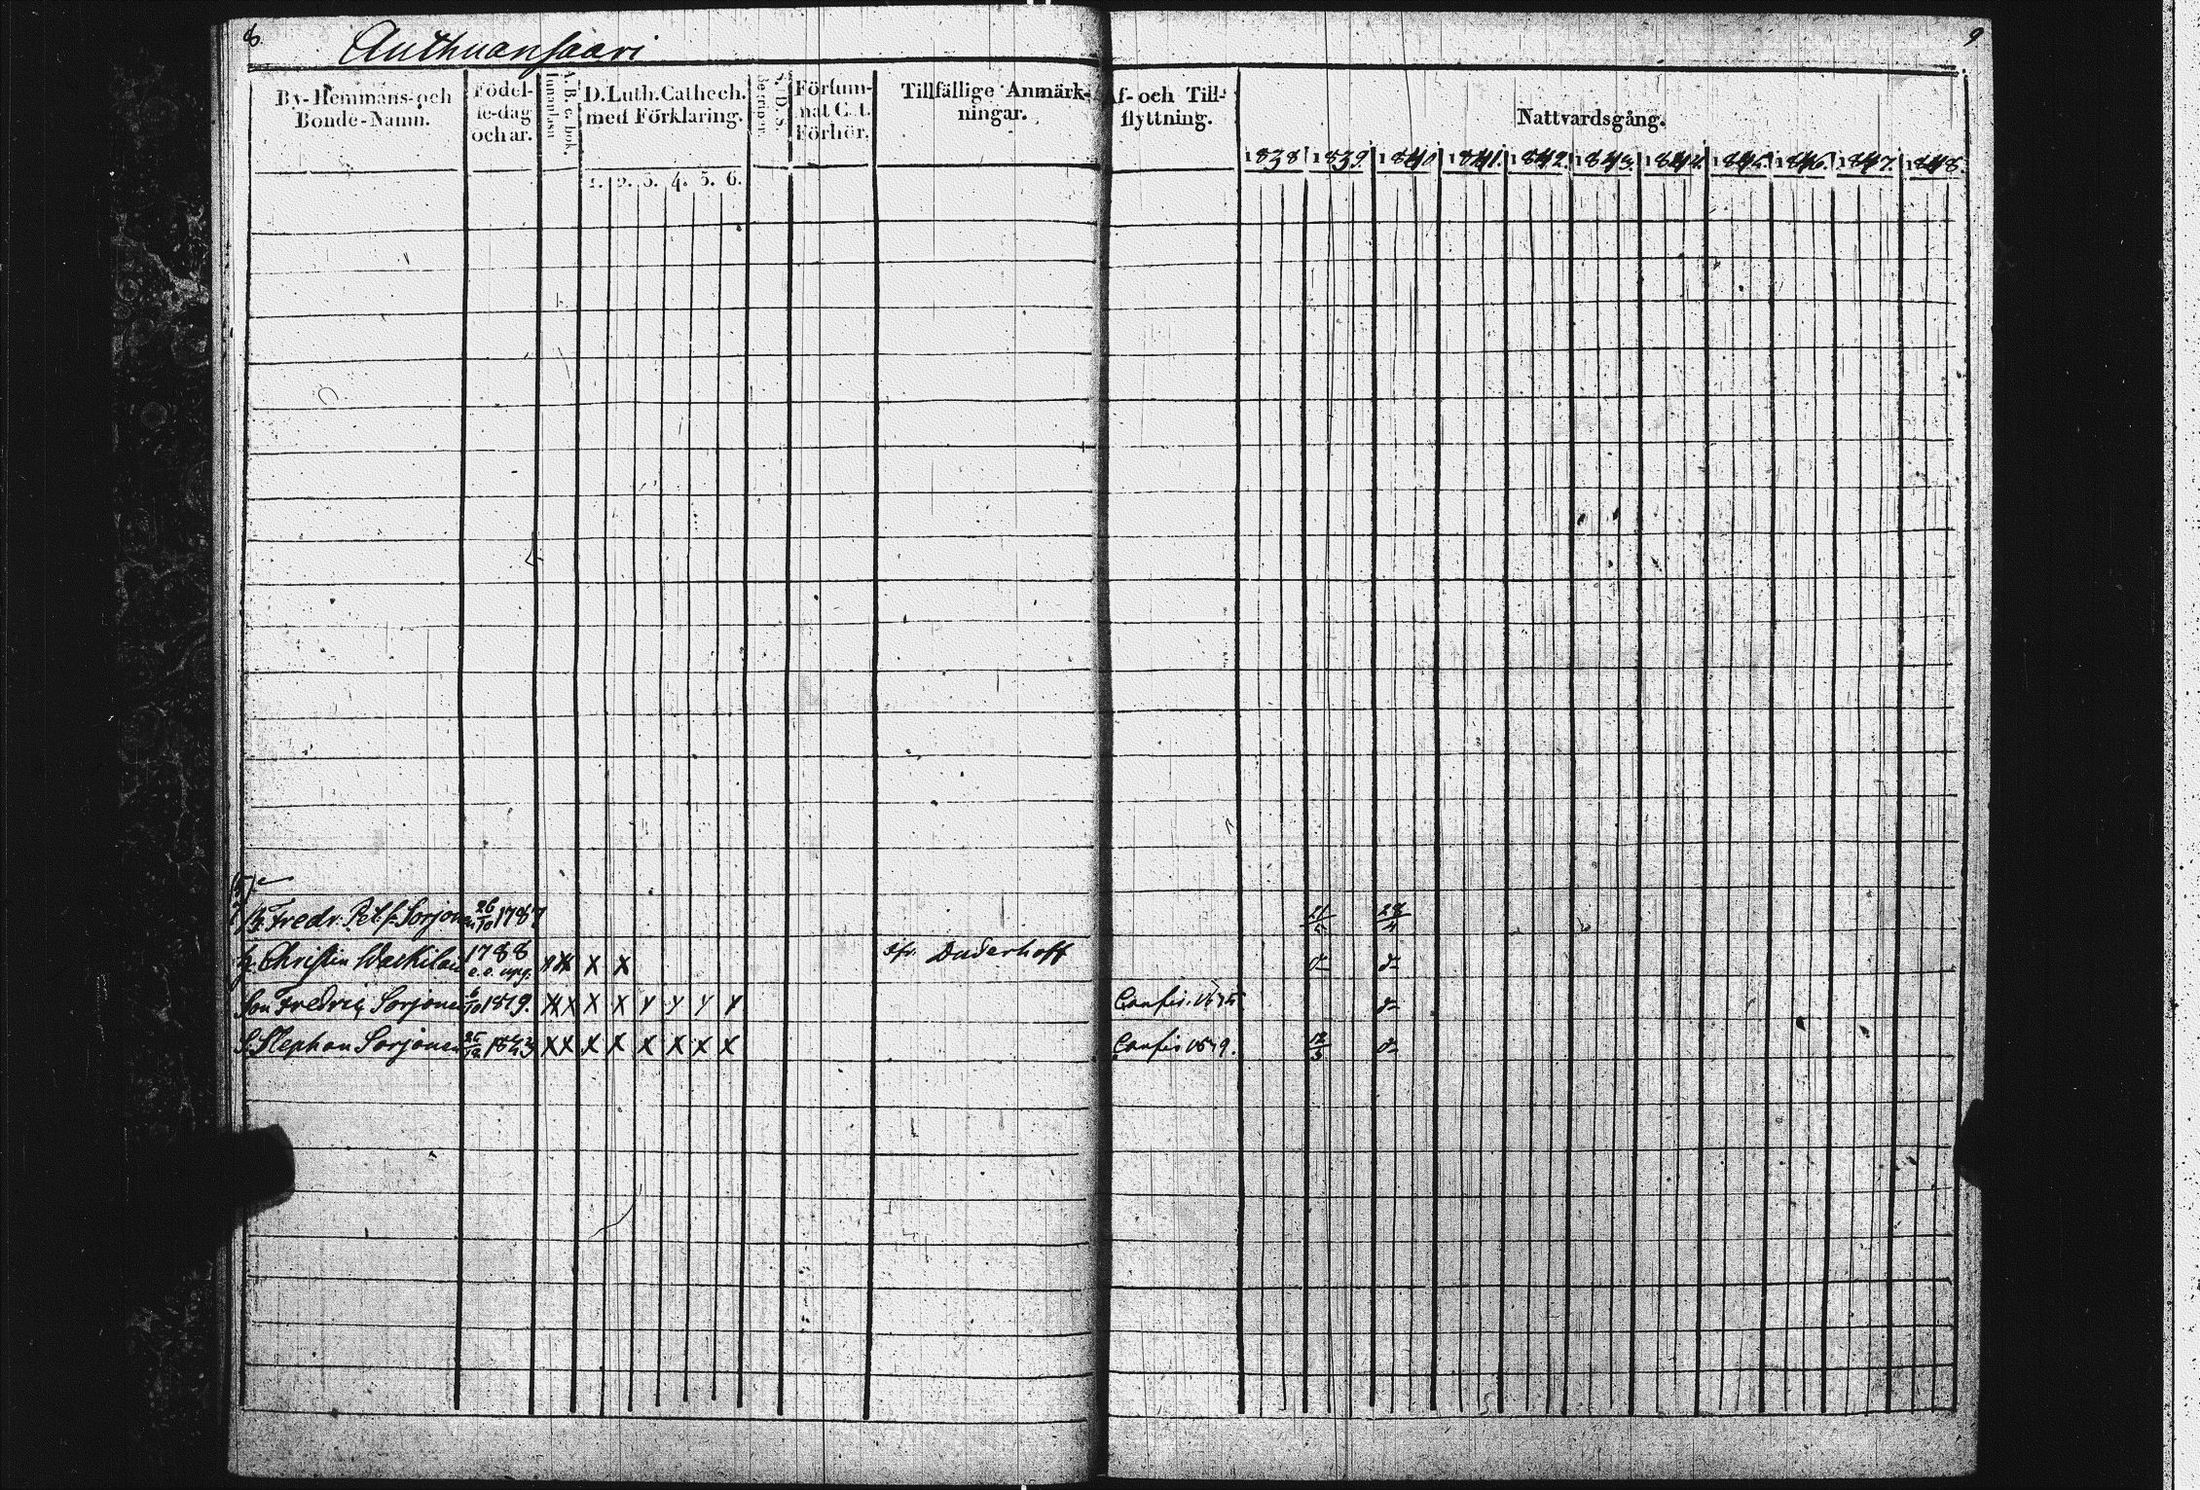 8.
Anthuansaari
9
By-Hemmans-och
Bonde-Namn.
Födel-
se-dag
och ar.
Innanläsn
A.B.c. bok.
D. Luth. Cathech.
med Förklaring.
1. 2. 3. 4. 5. 6.
Försum-
mat C. t.
Förhör.
Tillfällige Anmärk-
ningar.
Af- och Till-
flyttning.
Nattvardsgång.
1838 1839 1840 1841 1842 1843 1844 1845 1846 1847 1848.
Fredr. Pet. s. Sorjonen 26/10 1787 21/5 28/4
Christin Waskilain 1788 e. e. upg. X X X X Duderhoff d- d-
Son Fredric Sorjonen 6/10 1819. X X X X Y Y Y Y Confir. d-
S. Stephan Sorjonen X X X X X X X X Confir 1839. 12/3 d-